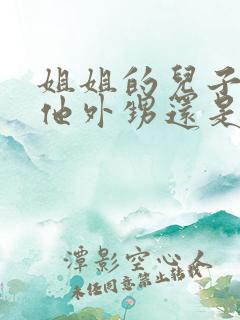 姐姐的兒子
他外甥還是
潭影空心人
未经同意禁止转载